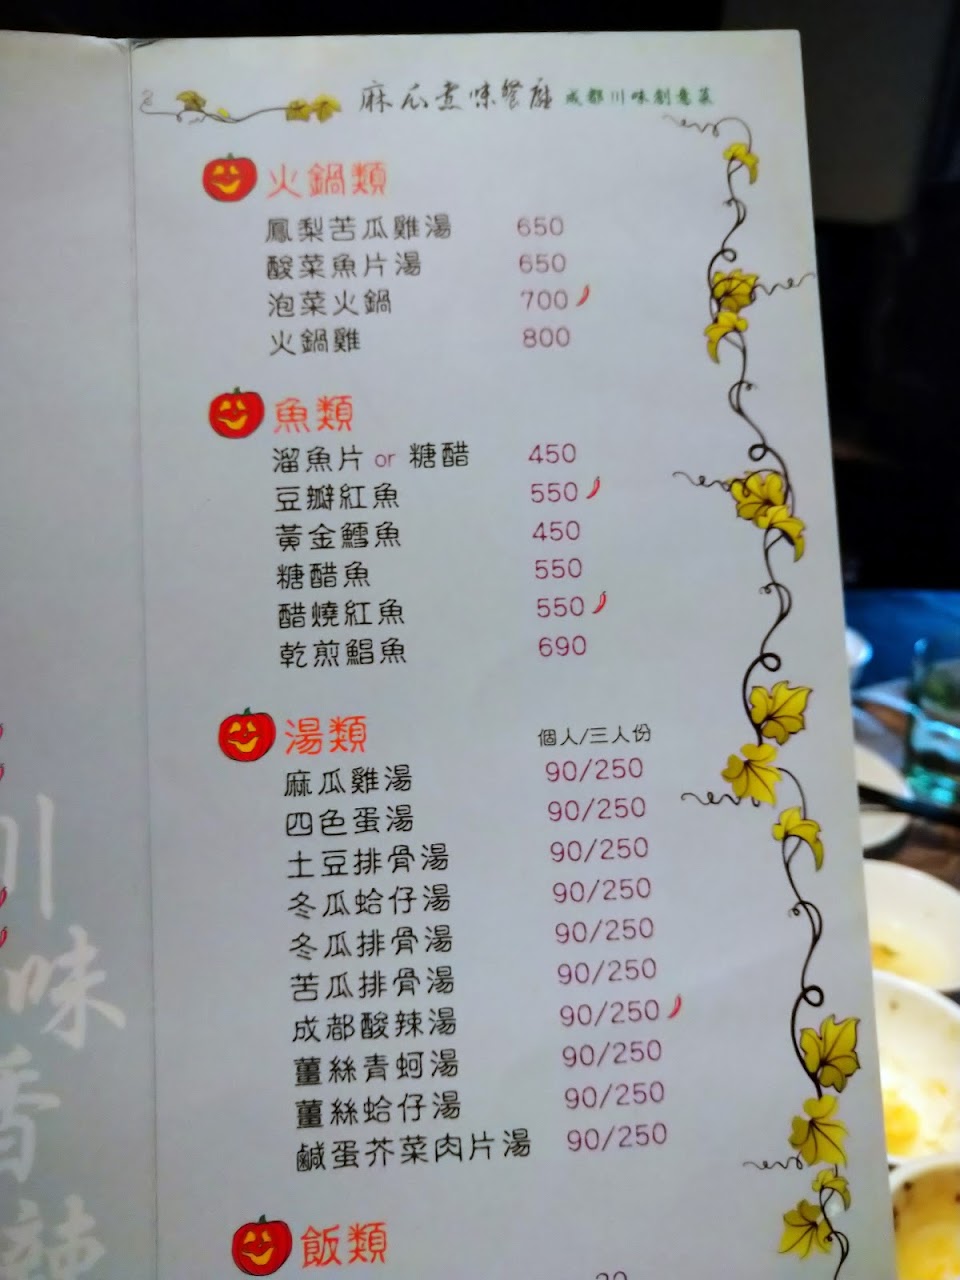 麻瓜煮味餐廳 成都川味創意菜
火鍋類
鳳梨苦瓜雞湯 650
酸菜魚片湯 650
泡菜火鍋 700
火鍋雞 800
魚類
溜魚片 or 糖醋 450
豆瓣紅魚 550
黃金鱈魚 450
糖醋魚 550
醋燒紅魚 550
乾煎鯧魚 690
湯類 個人/三人份
麻瓜雞湯 90/250
四色蛋湯 90/250
土豆排骨湯 90/250
冬瓜蛤仔湯 90/250
冬瓜排骨湯 90/250
苦瓜排骨湯 90/250
成都酸辣湯 90/250
薑絲青蚵湯 90/250
薑絲蛤仔湯 90/250
鹹蛋芥菜肉片湯 90/250
飯類
川味香辣